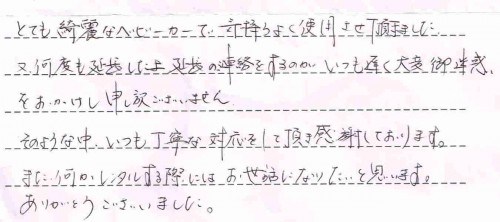 とても綺麗なベビーカーで気持ちよく使用させ頂ました
又何度も延長した上延長の連絡をするのがいつも遅く大変御迷惑
をおかけし申し訳ございません
そのような中、いつも丁寧な対応をして頂き感謝しております。
また何かレンタルする際にはお世話になりたいと思います。
ありがとうございました。